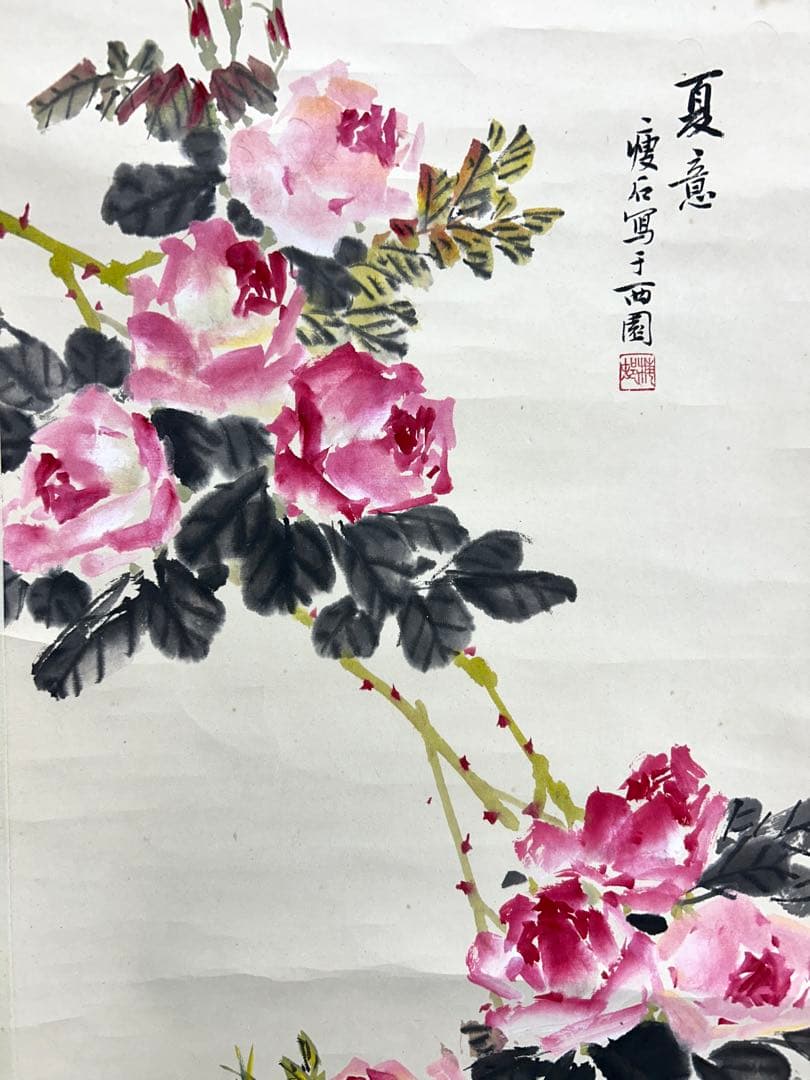 夏意
瘦石写于西園